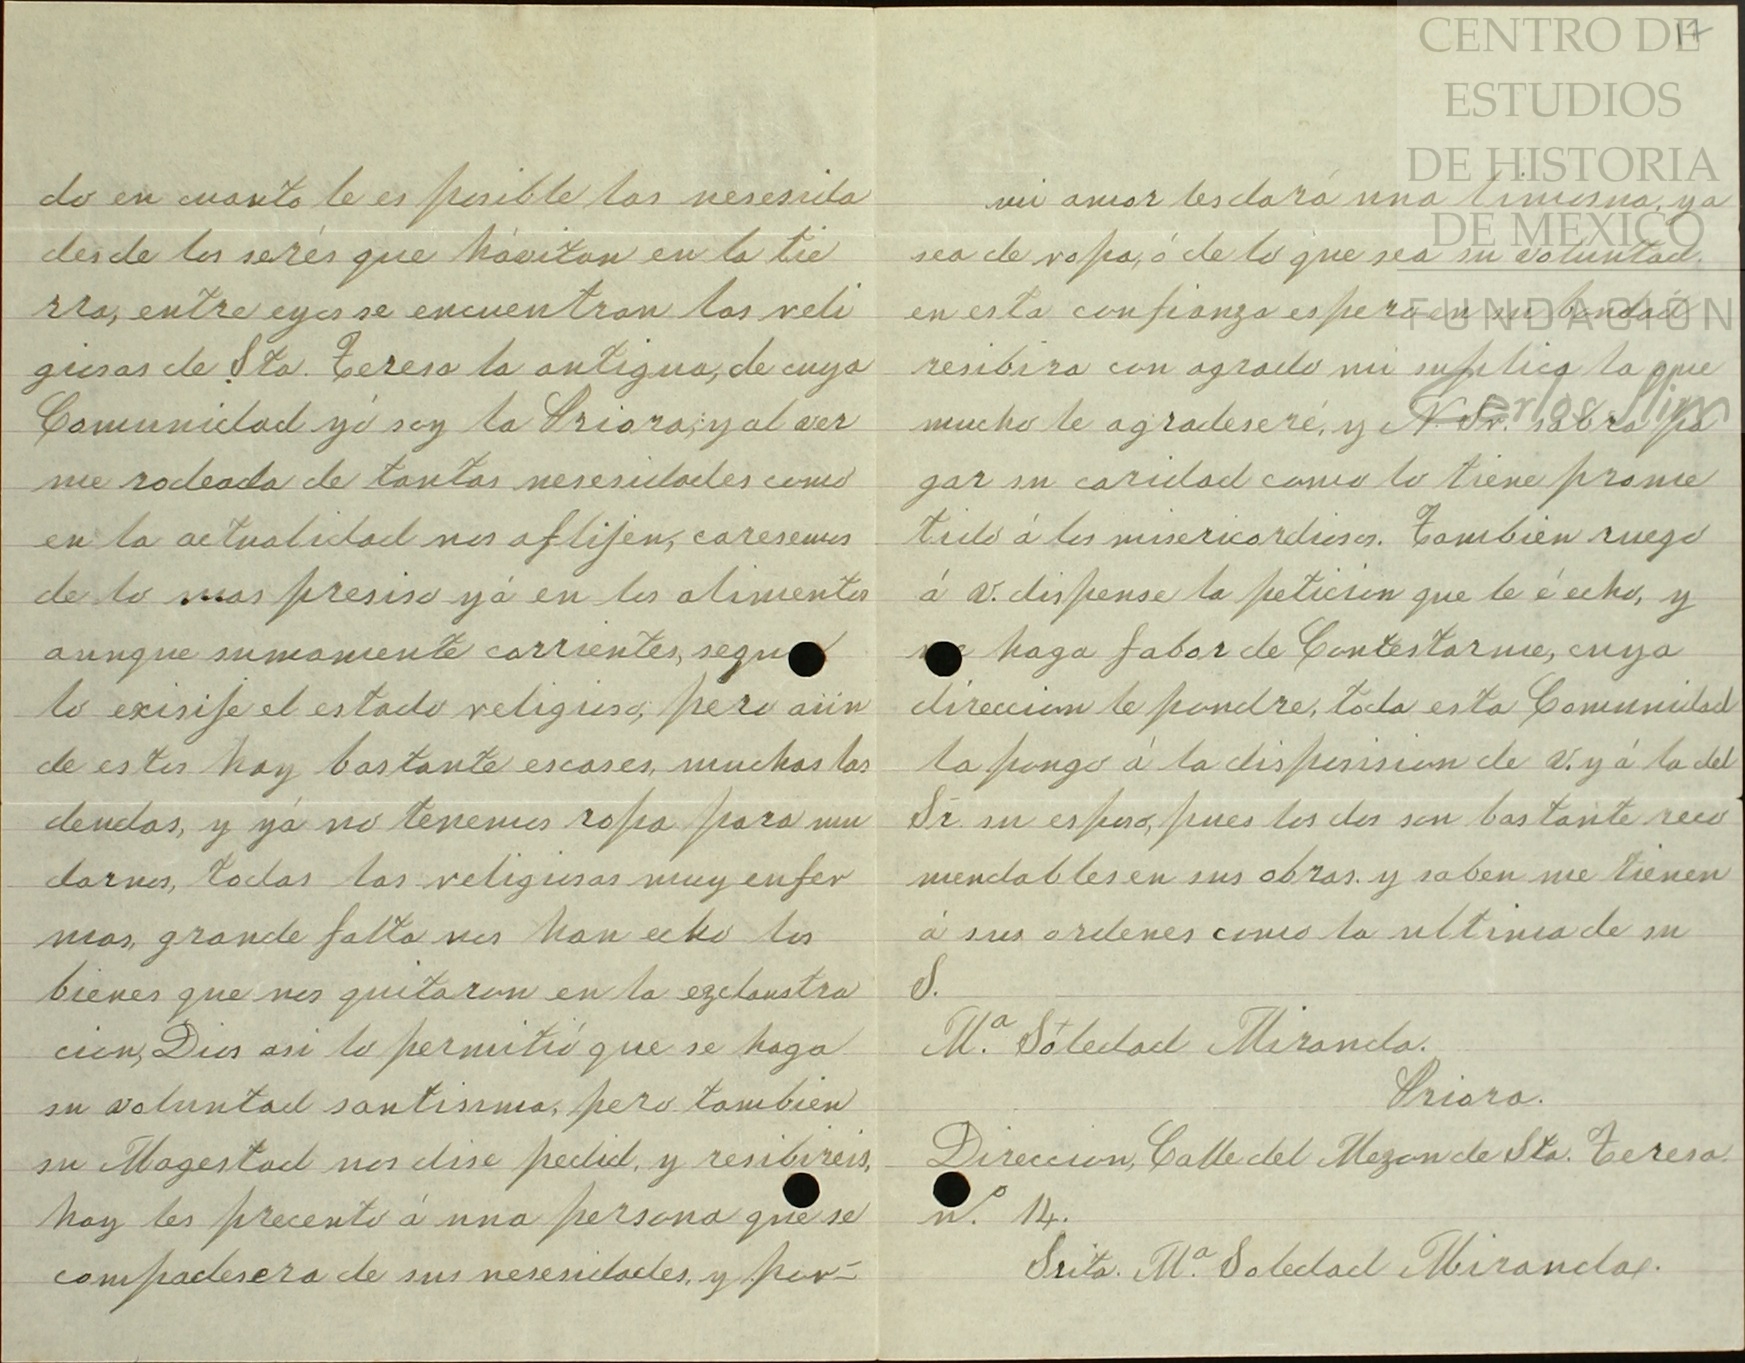 do en cuanto le es posible las nesesida
des de los serés que hávitan en la tie
rra, entre eyos se encuentran las reli
giosas de Sta. Teresa la antigua, de cuya
Comunidad yó soy la Priora, y al ver
me rodeada de tantas nesesidades como
en la actualidad nos aflijen, caresemos
de lo mas presiso yá en los alimentos
aunque sumamente corrientes, segun
lo exisije el estado religioso, pero aún
de estos hay bastante escases, muchas las
deudas, y yá no tenemos ropa para mu
darnos, todas las religiosas muy enfer
mas, grande falta nos han echo los
bienes que nos quitaron en la ezclaustra
cion, Dios asi lo permitió que se haga
su voluntad santisima, pero tambien
su Magestad nos dise pedid, y resibireis,
hoy les precento á una persona que se
compadesera de sus nesesidades, y por-
17
mi amor les dará una limosna, ya
sea de ropa, ó de lo que sea su voluntad.
en esta confianza espero en su bondad
resibira con agrado mi suplica la que
mucho le agradeseré, y N. Sr. sabra pa
gar su caridad como lo tiene prome
tido á los misericordiosos. Tambien ruego
á v. dispense la peticion que le é echo, y
me haga fabor de Contestarme, cuya
direccion le pondre, toda esta Comunidad
la pongo á la disposision de v. y á la del
Sr. su esposo, pues los dos son bastante reco
mendables en sus obras. y saben me tienen
á sus ordenes como la ultima de su
S.
Mª. Soledad Miranda.
Priora.
Direccion, Calle del Mezon de Sta. Teresa
nº. 14.
Srita. Mª. Soledad Miranda.
CENTRO DE
ESTUDIOS
DE HISTORIA
DE MEXICO
FUNDACIÓN
Carlos Slim